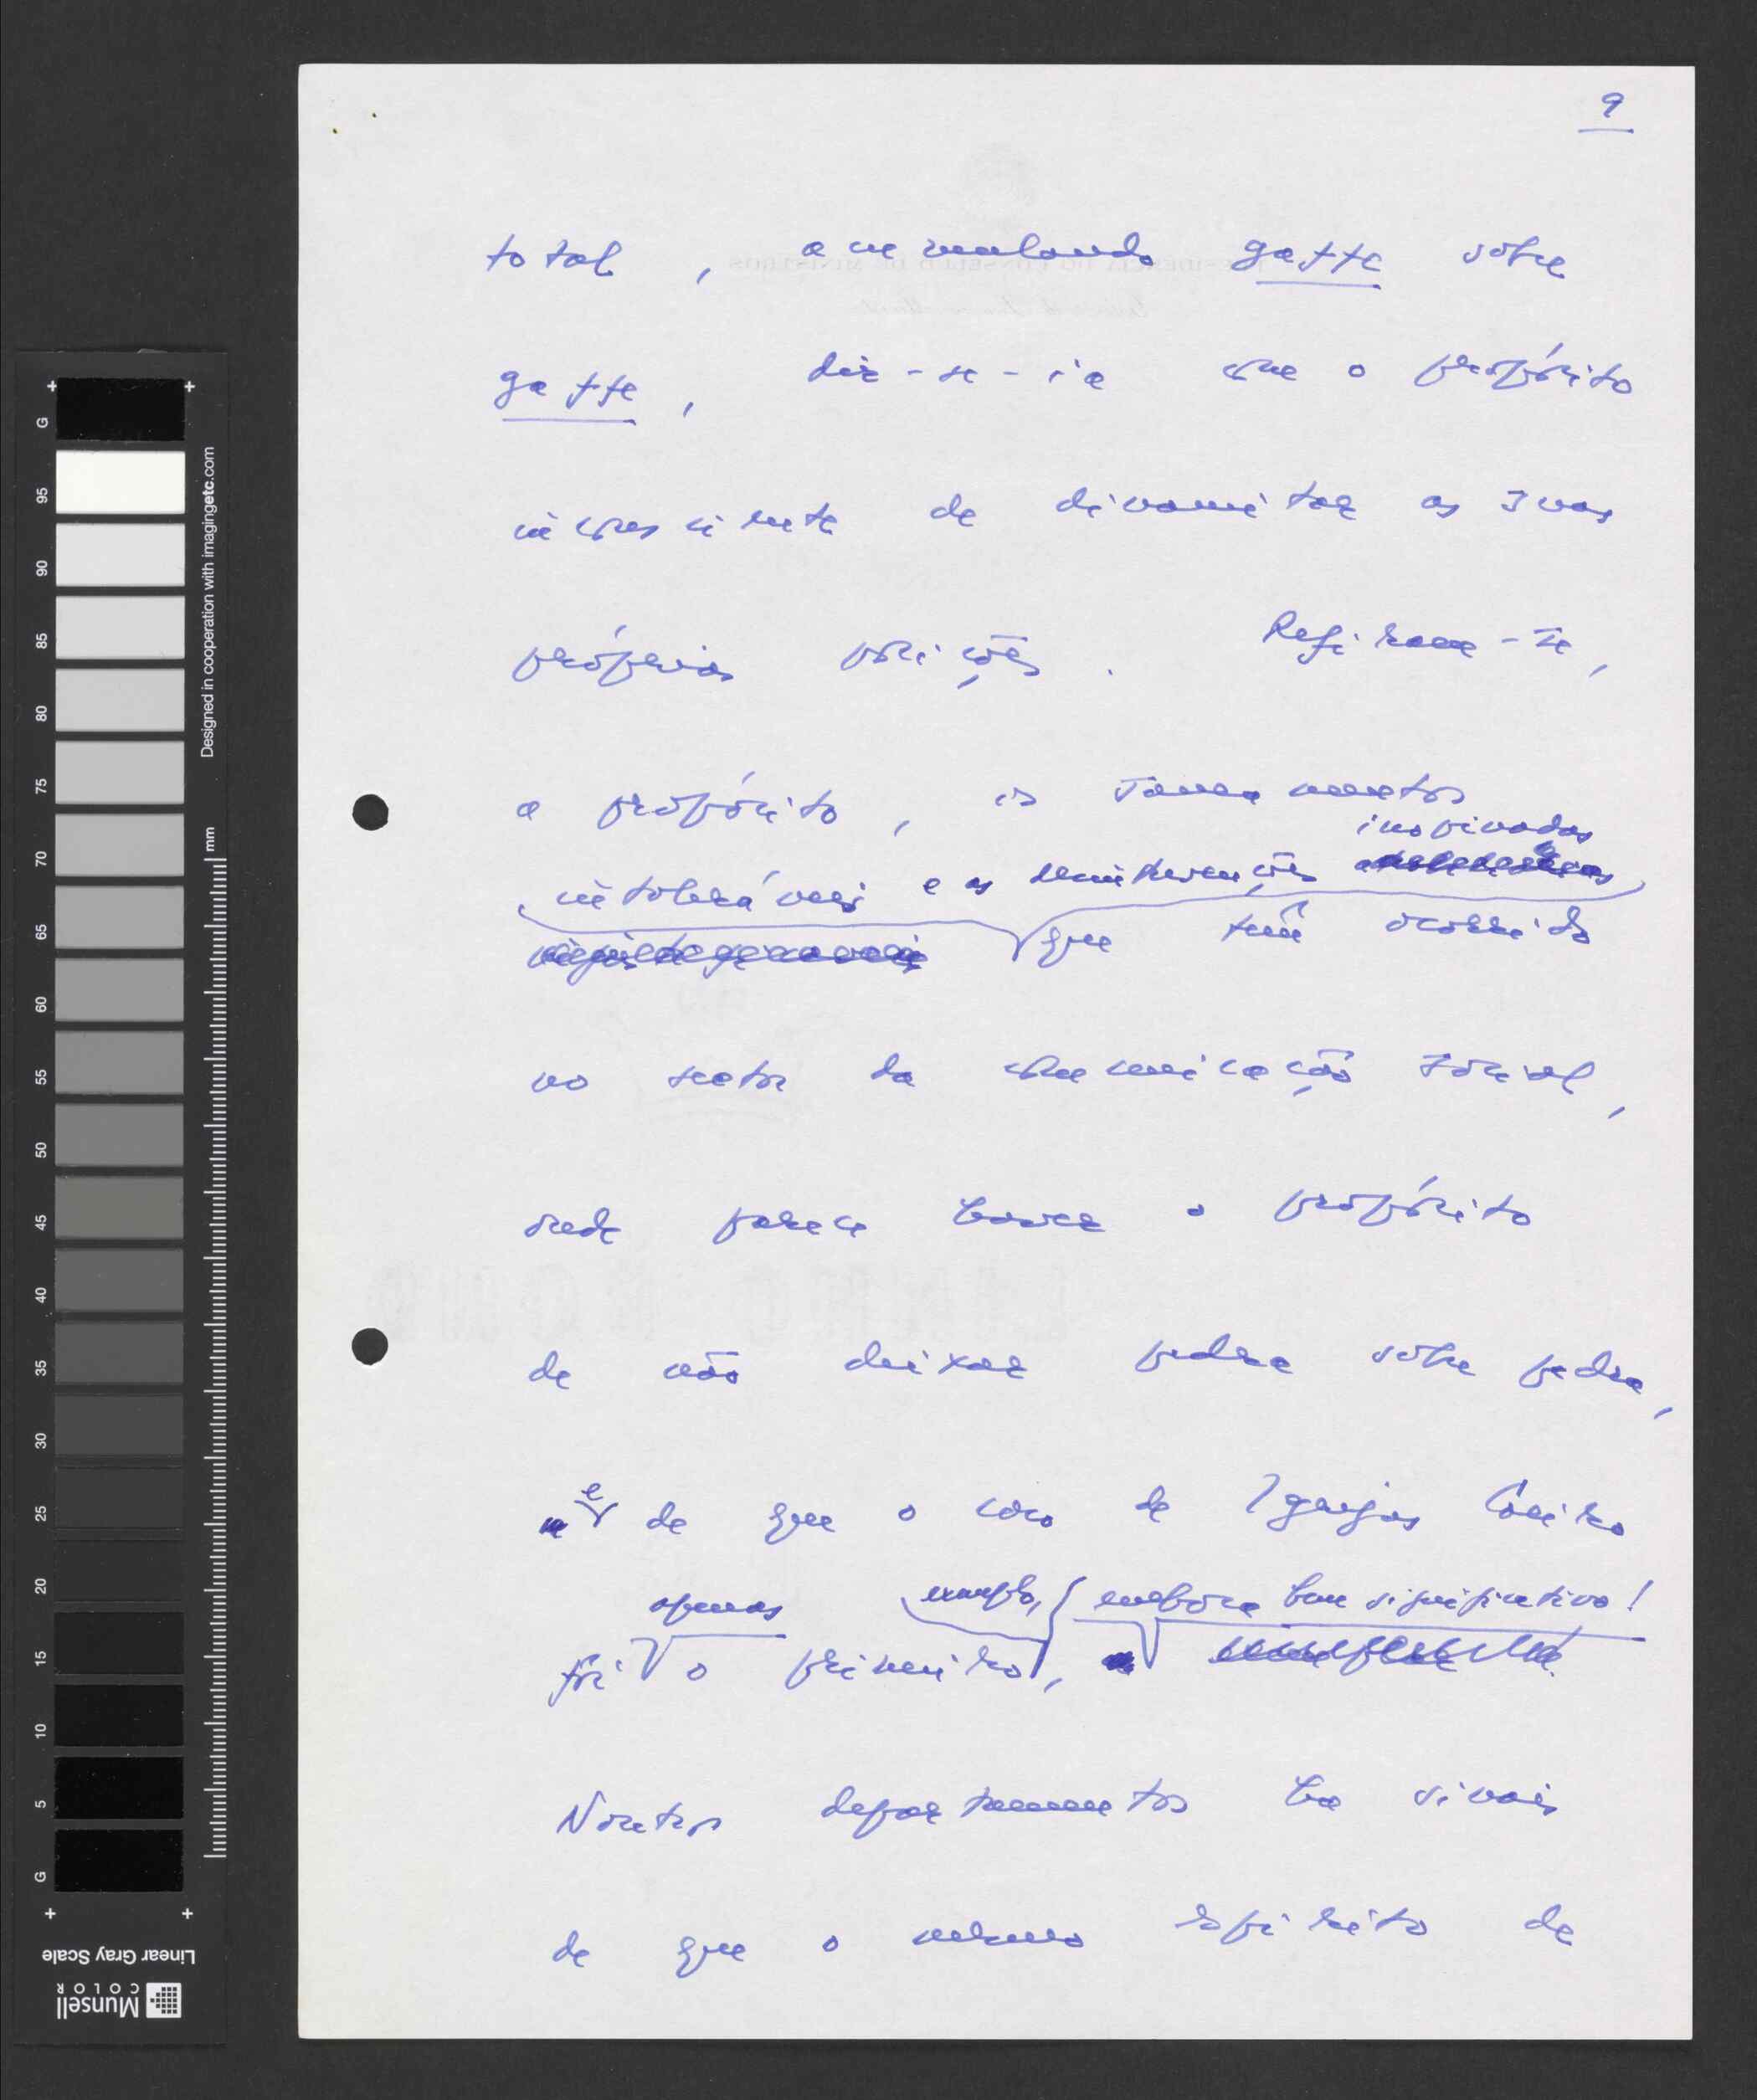 9
total, acumulando gaffe sobre
gaffe, dir-se-ia com o propósito
inconsciente de dinamitar as suas
próprias posições. Refiram-se,
a propósito, os saneamentos
inopinadas
intoleráveis e as
que têm ocorrido
no sector da comunicação social,
onde parece haver o propósito
de não deixar pedra sobre pedra,
e de que o caso de Igrejas Caeiro
apenas exemplo, embora bem significativo!
foi o primeiro,
Noutros departamentos há sinais
de que o mesmo espírito de
G 95 90 85 80 75 70 65 60 55 50 45 40 35 30 25 20 15 10 5 G
Designed in cooperation with imagingetc.com
mm
Linear Gray Scale
Munsell
COLOR